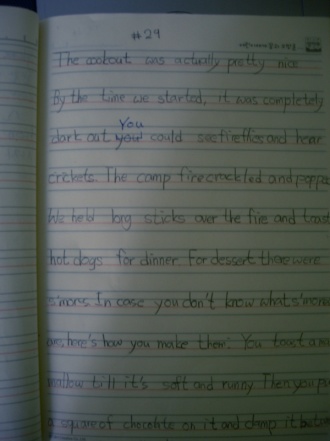 #29
The cookout was actually pretty nice
By the time we started, it was completely
You
dark out you could see fireflies and hear
crickets. The camp fire crackled and poppe
We held long sticks over the fire and toast
hot dogs for dinner. For dessert there were
s'mores. In case you don't know what s'more
are, here's how you make them: You toast a ma
mallow till it's soft and runny Then you pu
a square of chocolate on it and clamp it betw